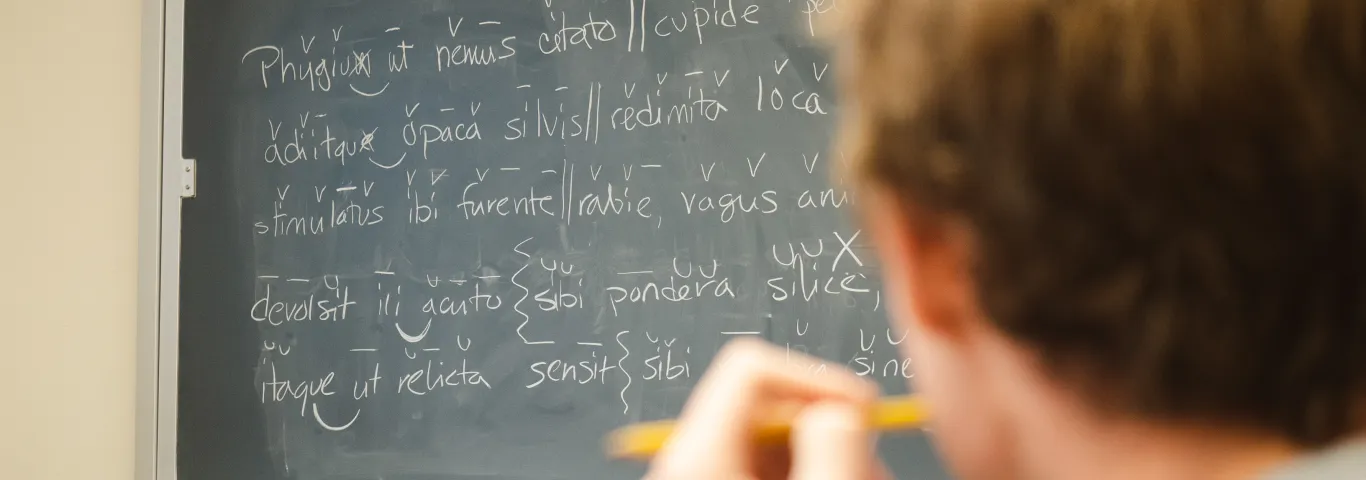 Phrygium ut nemus citato || cupide pe
adiitque opaca silvis || redimita loca
stimulatus ibi furente || rabie, vagus ani
devolsit ili acuto { sibi pondera silice,
itaque ut relicta sensit { sibi sine